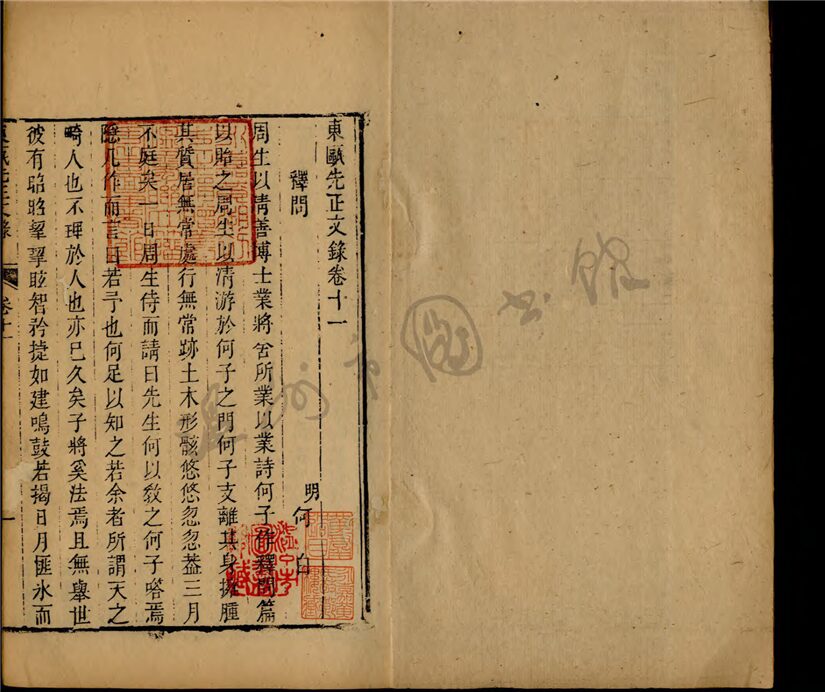 東甌先正文錄卷十一
釋問
明何 白
周生以清善博士業將舍所業以業詩何子作釋問篇
以貽之周生以清游於何子之門何子支離其身擁腫
其質居無常處行無常跡土木形骸悠悠忽忽葢三月
不庭矣一日周生侍而請曰先生何以敎之何子嗒焉
隱几作而言曰若予也何足以知之若余者所謂天之
畸人也不理於人也亦已久矣子將奚法焉且無舉世
彼有昭昭揫揫眩智矜捷如建鳴鼓若揭日月匪氷而
東甌先正文錄
卷十一
一
溫州市圖書館